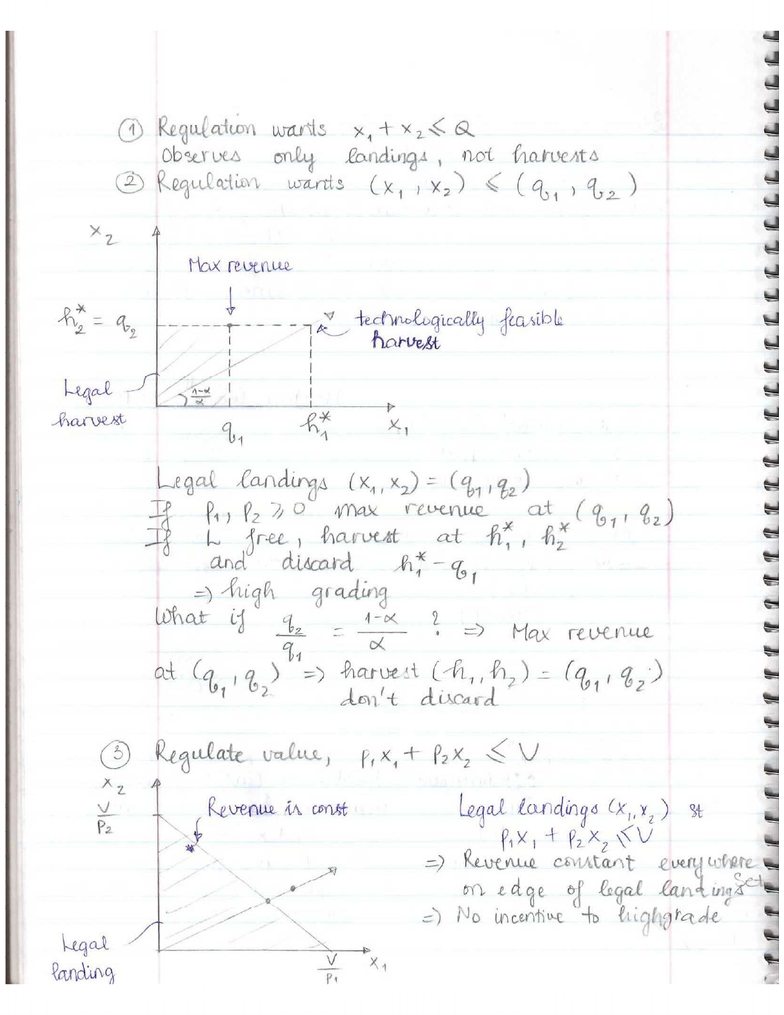 ① Regulation wants x₁ + x₂ ≤ Q
Observes only landings, not harvests
② Regulation wants (x₁, x₂) ≤ (q₁, q₂)
x₂
Max revenue
h₂* = q₂
technologically feasible
harvest
Legal
harvest
1-α/α
q₁ h₁* x₁
Legal landings (x₁, x₂) = (q₁, q₂)
If p₁, p₂ ≥ 0 max revenue at (q₁, q₂)
If L free, harvest at h₁*, h₂*
and discard h₁* - q₁
⇒ high grading
What if q₂/q₁ = 1-α/α ? ⇒ Max revenue
at (q₁, q₂) ⇒ harvest (h₁, h₂) = (q₁, q₂)
don't discard
③ Regulate value, p₁x₁ + p₂x₂ ≤ V
x₂
V/p₂
Revenue is const
Legal landings (x₁, x₂) st
p₁x₁ + p₂x₂ ≤ V
⇒ Revenue constant everywhere
on edge of legal landings set
⇒ No incentive to highgrade
Legal
landing
V/p₁ x₁